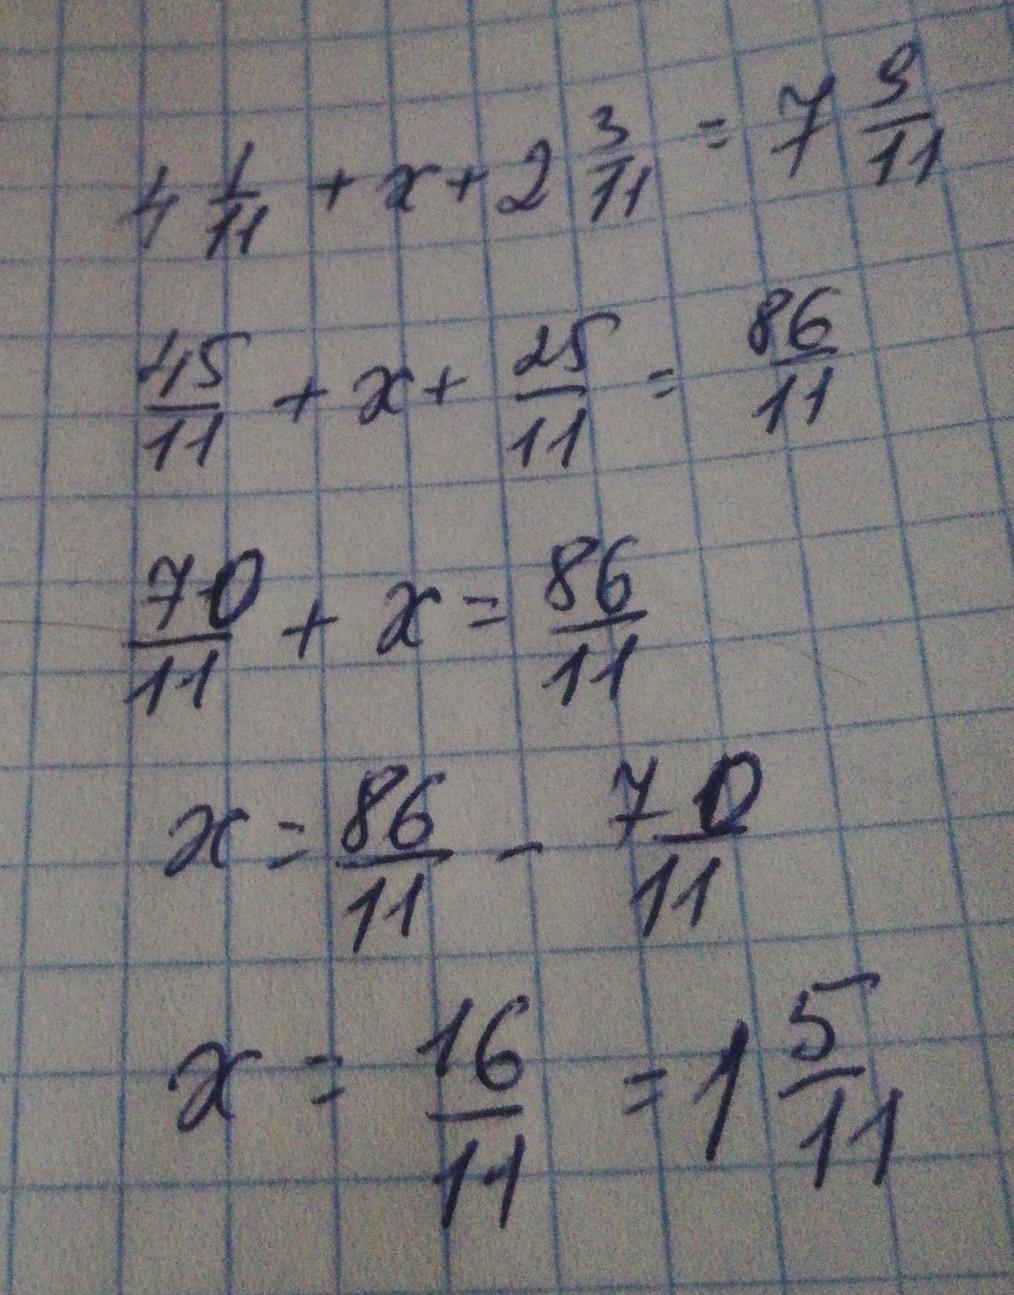 4 1/11 + x + 2 3/11 = 7 9/11
45/11 + x + 25/11 = 86/11
70/11 + x = 86/11
x = 86/11 - 70/11
x = 16/11 = 1 5/11